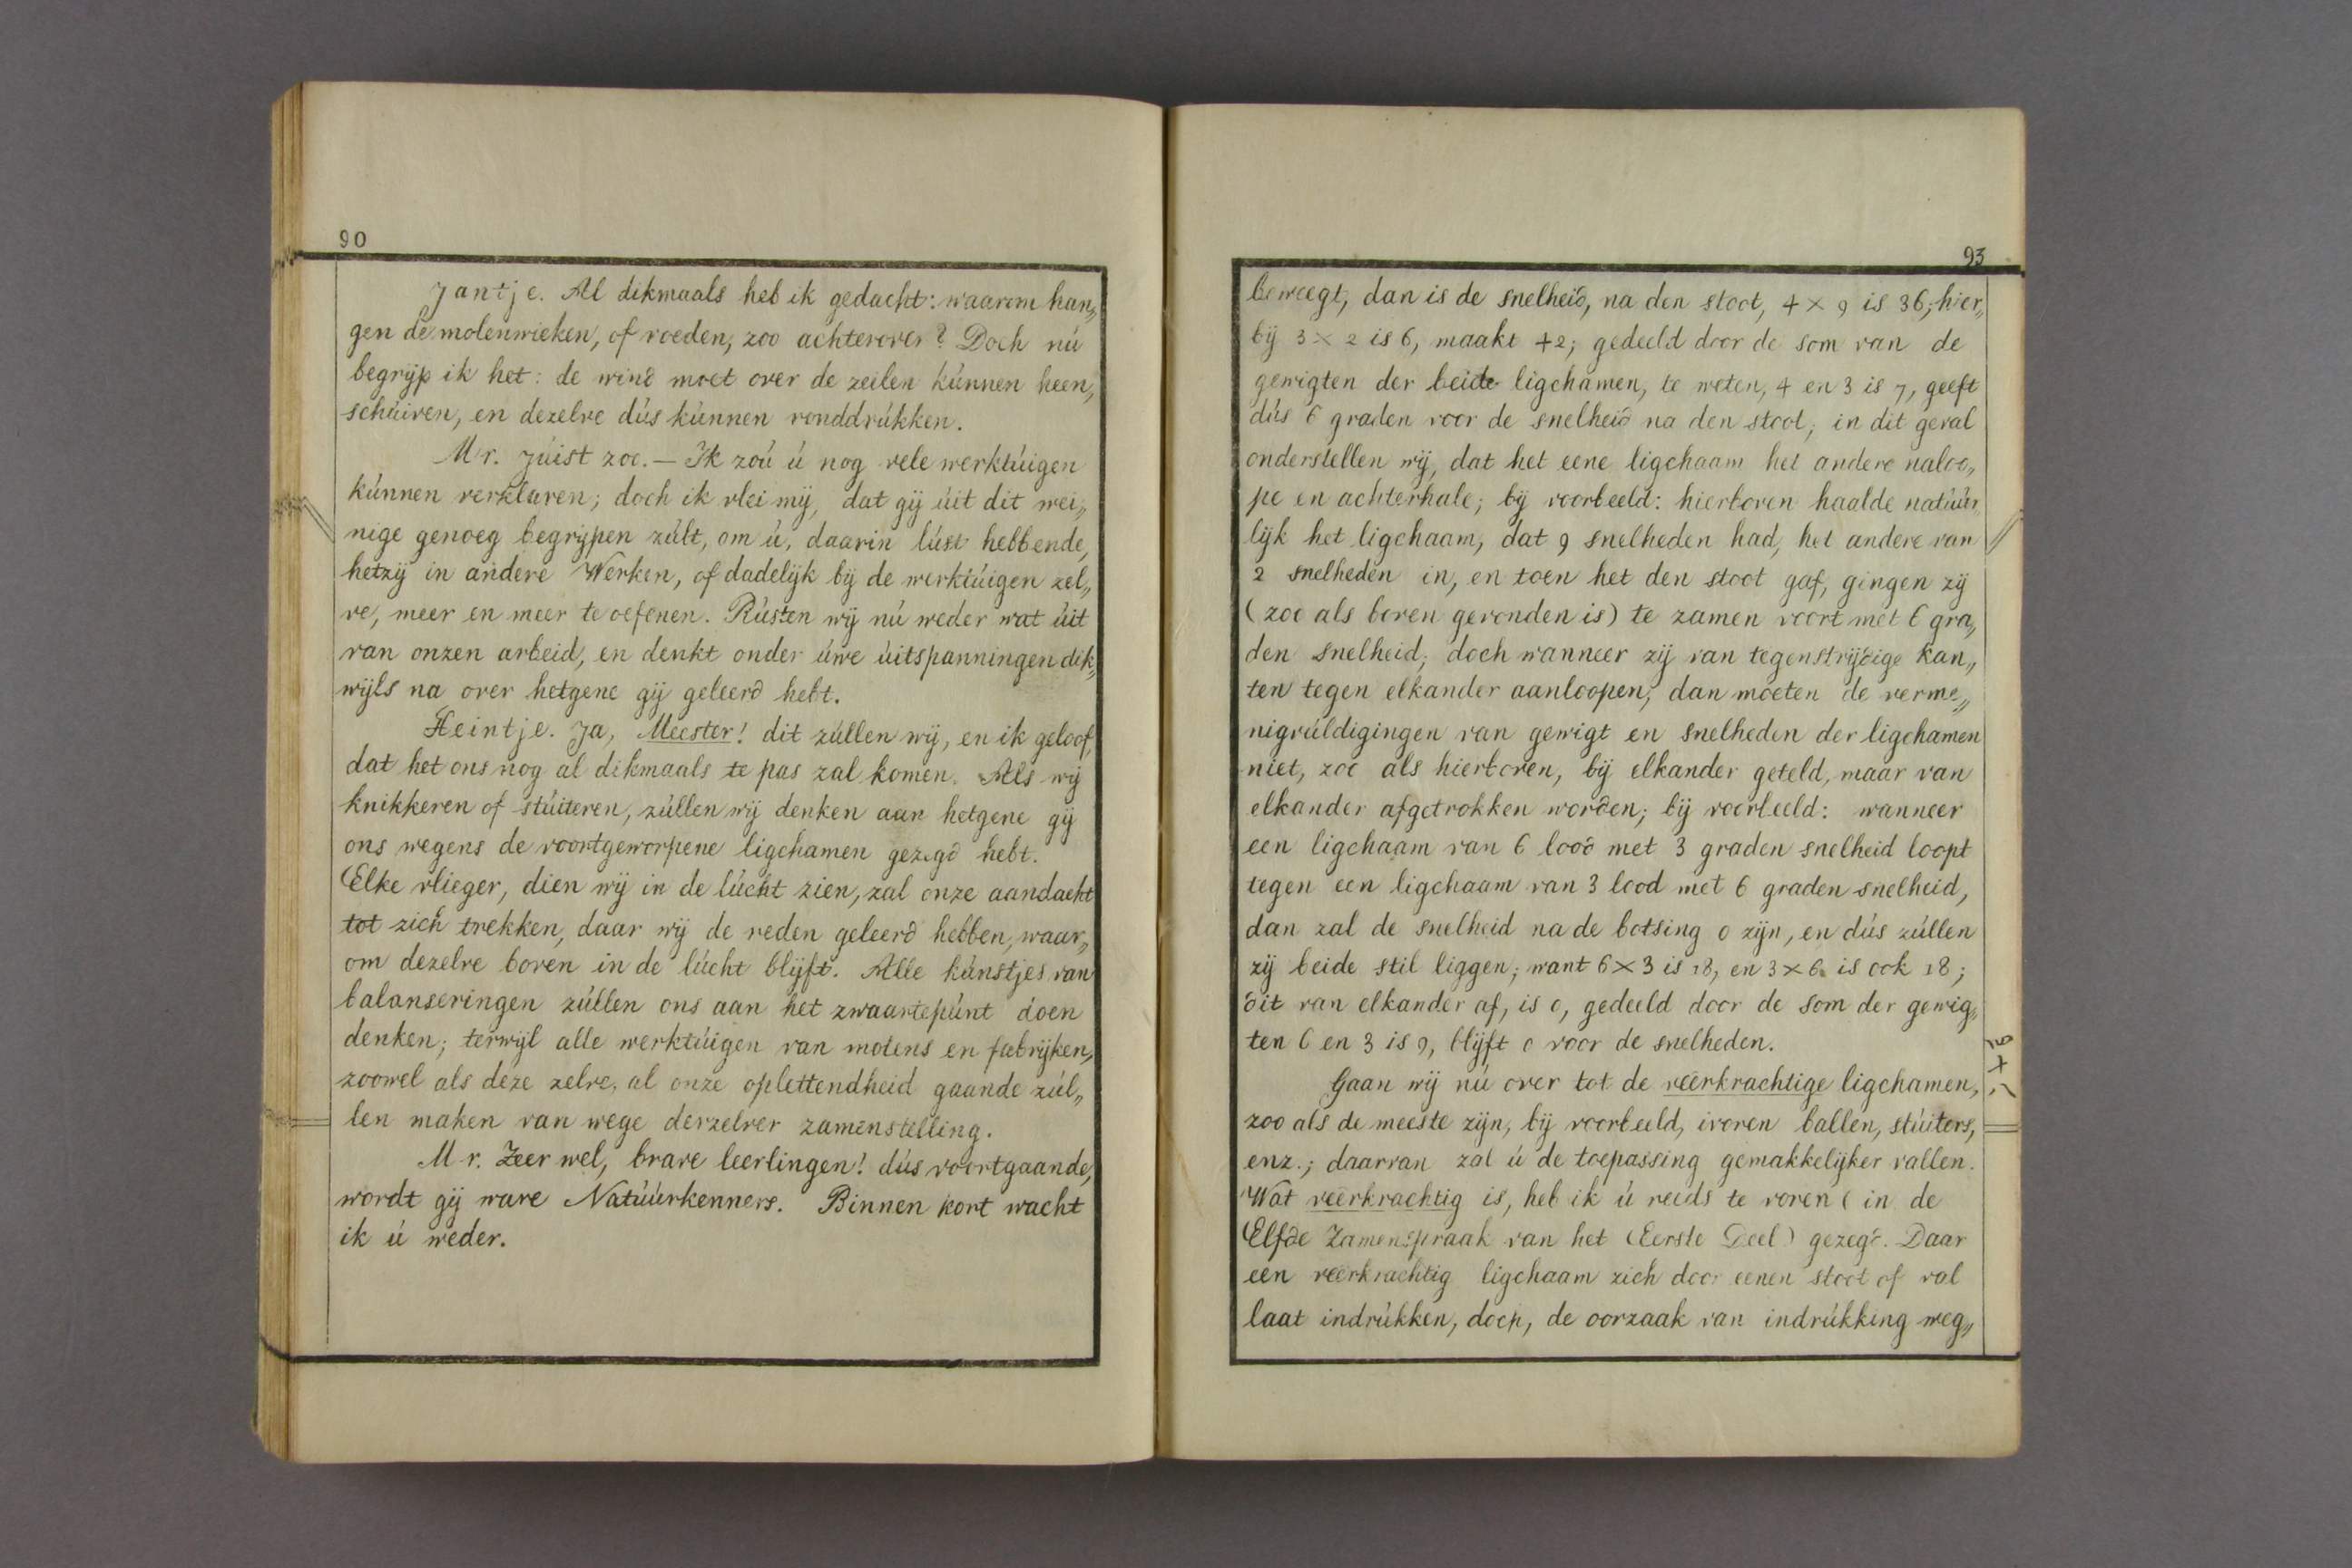 90
Jantje. Al dikmaals heb ik gedacht: waarom han„
gen de molenwieken, of roeden, zoo achterover? Doch nú
begrijp ik het: de wind moet over de zeilen kúnnen heen„
schúiren, en dezelve dús kúnnen ronddrúkken.
Mr. Júist zoo. — Ik zoú ú nog vele werktúigen
kúnnen verklaren; doch ik vlei mij, dat gij úit dit wei„
nige genoeg begrijpen zúlt, om ú, daarin lúst hebbende,
hetzij in andere Werken, of dadelijk bij de werktúigen zel„
ve, meer en meer te oefenen. Rústen wij nú weder wat úit
van onzen arbeid, en denkt onder úwe úitspanningen dik„
wijls na over hetgene gij geleerd hebt.
Heintje. Ja, Meester! dit zúllen wij, en ik geloof,
dat het ons nog al dikmaals te pas zal komen. Als wij
knikkeren of stúiteren, zúllen wij denken aan hetgene gij
ons wegens de voortgeworpene ligchamen gezegd hebt.
Elke vlieger, dien wij in de lúcht zien, zal onze aandacht
tot zich trekken, daar wij de reden geleerd hebben, waar„
om dezelve boven in de lúcht blijft. Alle kúnstjes van
balanseringen zúllen ons aan het zwaartepúnt doen
denken; terwijl alle werktúigen van molens en fabrijken,
zoowel als deze zelve, al onze oplettendheid gaande zúl„
len maken van wege derzelver zamenstelling.
Mr. Zeer wel, brave leerlingen! dús voortgaande,
wordt gij ware Natúúrkenners. Binnen kort wacht
ik ú weder.
93
beweegt, dan is de snelheid, na den stoot, 4 × 9 is 36; hier„
bij 3 × 2 is 6, maakt 42; gedeeld door de som van de
gewigten der beide ligchamen, te weten, 4 en 3 is 7, geeft
dús 6 graden voor de snelheid na den stoot; in dit geval
onderstellen wij, dat het eene ligchaam het andere naloo„
pe en achterhale; bij voorbeeld: hierboven haalde natúúr„
lijk het ligchaam, dat 9 snelheden had, het andere van
2 snelheden in, en toen het den stoot gaf, gingen zij
(zoo als boven gevonden is) te zamen voort met 6 gra„
den snelheid; doch wanneer zij van tegenstrijdige kan„
ten tegen elkander aanloopen, dan moeten de verme„
nigvúldigingen van gewigt en snelheden der ligchamen
niet, zoo als hierboven, bij elkander geteld, maar van
elkander afgetrokken worden; bij voorbeeld: wanneer
een ligchaam van 6 lood met 3 graden snelheid loopt
tegen een ligchaam van 3 lood met 6 graden snelheid,
dan zal de snelheid na de botsing 0 zijn, en dús zúllen
zij beide stil liggen; want 6×3 is 18, en 3×6 is ook 18;
dit van elkander af, is 0, gedeeld door de som der gewig„
ten 6 en 3 is 9, blijft 0 voor de snelheden.
Gaan wij nú over tot de veêrkrachtige ligchamen,
zoo als de meeste zijn, bij voorbeeld, ivoren ballen, stúiters,
enz.; daarvan zal ú de toepassing gemakkelijker vallen.
Wat veêrkrachtig is, heb ik ú reeds te voren (in de
Elfde Zamenspraak van het Eerste Deel) gezegd. Daar
een veêrkrachtig ligchaam zich door eenen stoot of val
laat indrúkken, doch, de oorzaak van indrúkking weg„